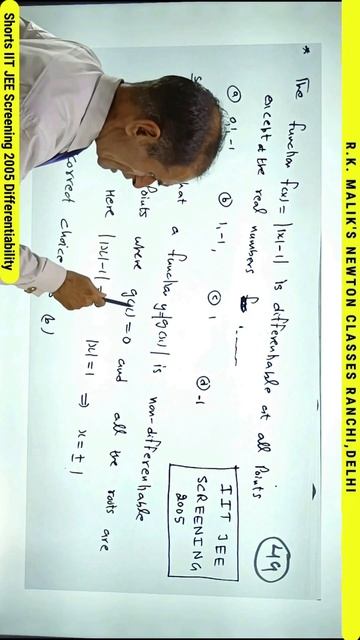 R.K. MALIK'S NEWTON CLASSES RANCHI, DELHI
49
* The function f(x) = ||x|-1| is differentiable at all points
except at the real numbers
(a) 0,1,-1 (b) 1,-1, (c) 1 (d) -1
IIT JEE
SCREENING
2005
a function y=|g(x)| is non-differentiable
Points where g(x)=0 and all the roots are
Here ||x|-1|
|x|=1 ⇒ x=±1
choice (b)
Shorts IIT JEE Screening 2005 Differentiability